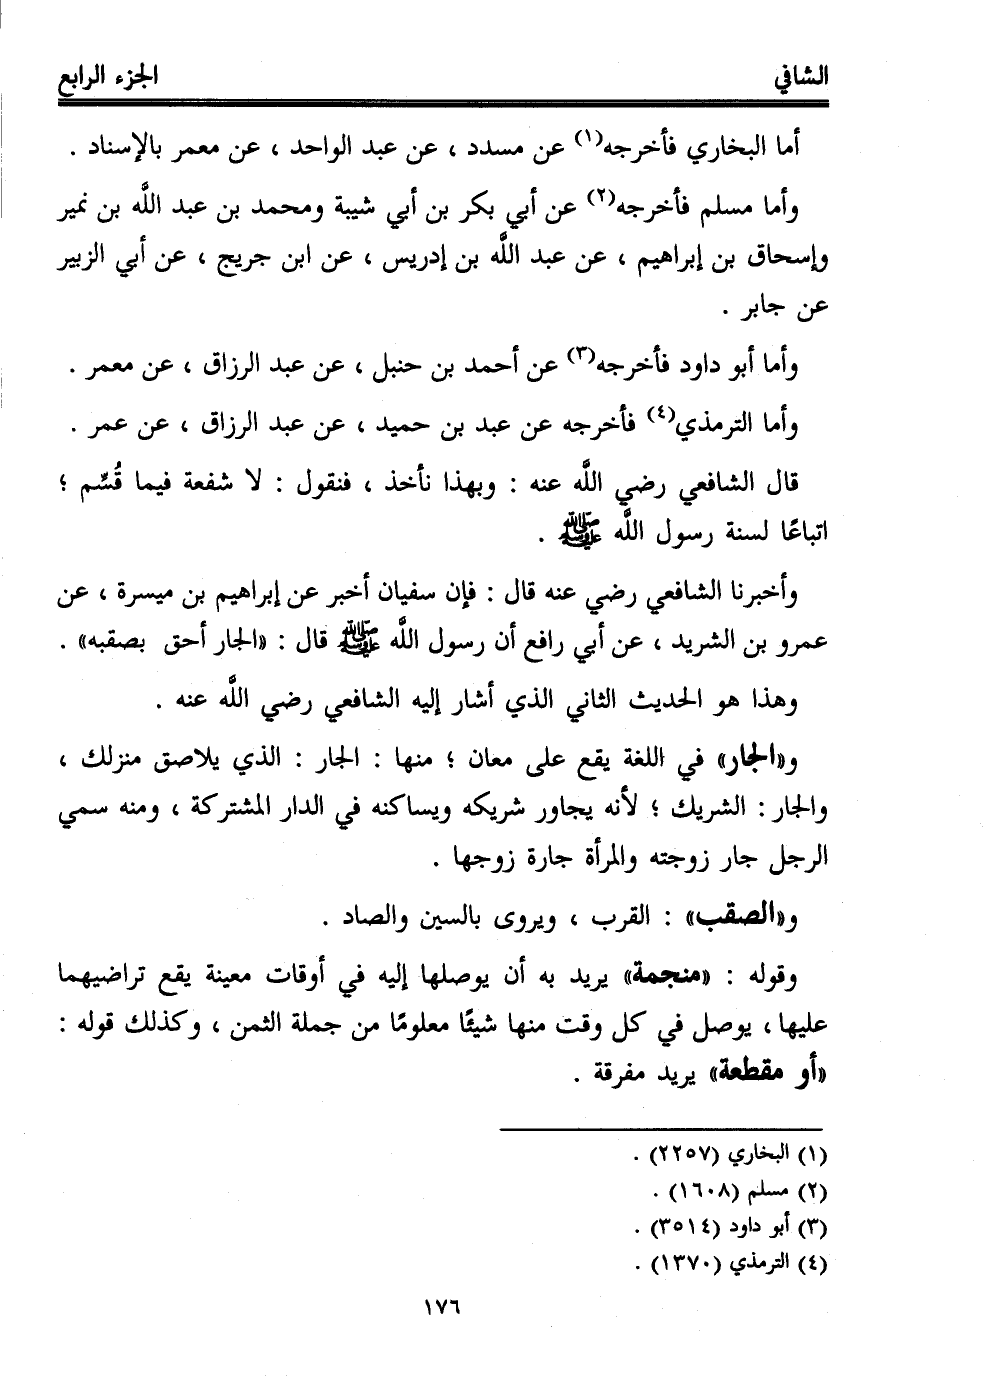 الشافي
الجزء الرابع
أما البخاري فأخرجه(١) عن مسدد ، عن عبد الواحد ، عن معمر بالإسناد .
وأما مسلم فأخرجه(٢) عن أبي بكر بن أبي شيبة ومحمد بن عبد اللَّه بن نمير
وإسحاق بن إبراهيم ، عن عبد اللَّه بن إدريس ، عن ابن جريج ، عن أبي الزبير
عن جابر .
وأما أبو داود فأخرجه(٣) عن أحمد بن حنبل ، عن عبد الرزاق ، عن معمر .
وأما الترمذي(٤) فأخرجه عن عبد بن حميد ، عن عبد الرزاق ، عن عمر .
قال الشافعي رضي اللَّه عنه : وبهذا نأخذ ، فنقول : لا شفعة فيما قُسِّم ؛
اتباعًا لسنة رسول اللَّه ﷺ .
وأخبرنا الشافعي رضي عنه قال : فإن سفيان أخبر عن إبراهيم بن ميسرة ، عن
عمرو بن الشريد ، عن أبي رافع أن رسول اللَّه ﷺ قال : «الجار أحق بصقبه» .
وهذا هو الحديث الثاني الذي أشار إليه الشافعي رضي اللَّه عنه .
و«الجار» في اللغة يقع على معان ؛ منها : الجار : الذي يلاصق منزلك ،
والجار : الشريك ؛ لأنه يجاور شريكه ويساكنه في الدار المشتركة ، ومنه سمي
الرجل جار زوجته والمرأة جارة زوجها .
و«الصقب» : القرب ، ويروى بالسين والصاد .
وقوله : «منجمة» يريد به أن يوصلها إليه في أوقات معينة يقع تراضيهما
عليها ، يوصل في كل وقت منها شيئًا معلومًا من جملة الثمن ، وكذلك قوله :
«أو مقطعة» يريد مفرقة .
(١) البخاري (٢٢٥٧) .
(٢) مسلم (١٦٠٨) .
(٣) أبو داود (٣٥١٤) .
(٤) الترمذي (١٣٧٠) .
١٧٦